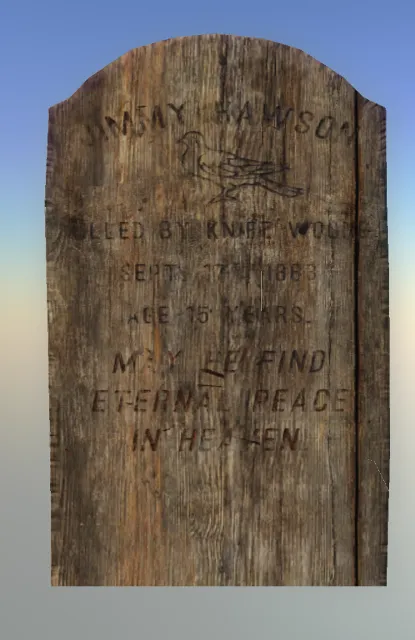 JIMMY RAWSON
KILLED BY KNIFE WOUND
SEPT. 17TH 1883
AGE 15 YEARS.
MAY HE FIND
ETERNAL PEACE
IN HEAVEN